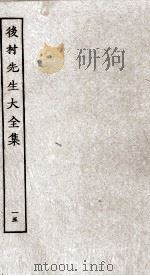 後村先生大全集
一五
mtoou.info